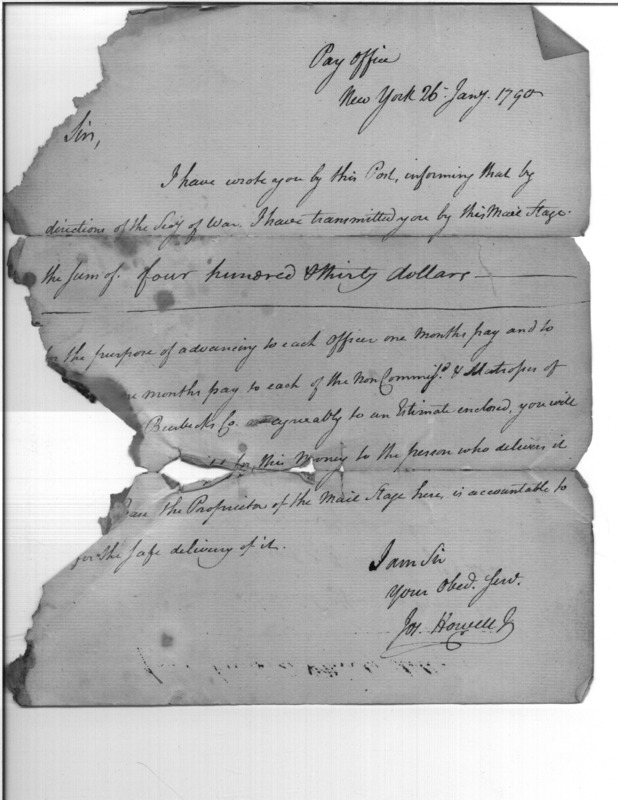 Pay Office
New York 26 Jany. 1790
Sir,
I have wrote you by this Post, informing that by
directions of the Secy of War. I have transmitted you by this Mail Stage.
the sum of. four hundred & thirty dollars
for the purpose of advancing to each officer one months pay and to
months pay to each of the Non Commissd. & Matrosses of
Burbecks Co. agreeably to an Estimate enclosed, you will
for this Money to the person who delivers it
the Proprietor of the Mail Stage here, is accountable to
for the safe delivery of it.
I am Sir
Your Obed. Serv.
Jos. Howell Jr